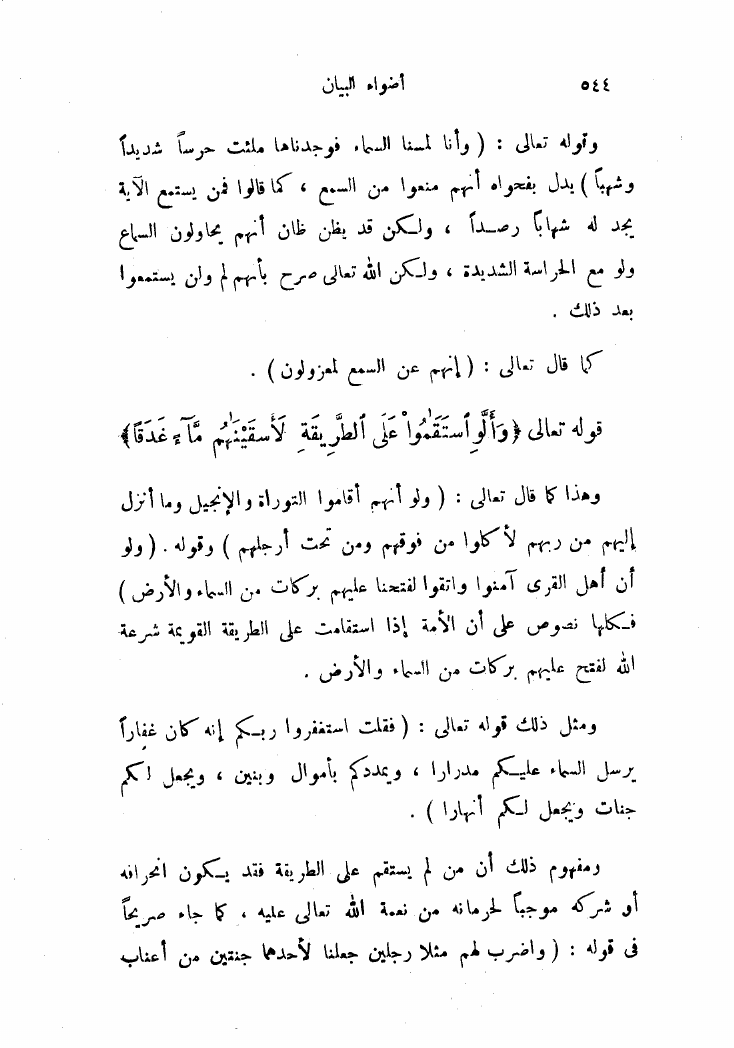 ٥٤٤ أضواء البيان
وقوله تعالى : ( وأنا لمسنا السماء فوجدناها ملئت حرساً شديداً
وشهباً ) يدل بفحواه أنهم منعوا من السمع ، كما قالوا فمن يستمع الآية
يجد له شهاباً رصـداً ، ولـكن قد يظن ظان أنهم يحاولون السماع
ولو مع الحراسة الشديدة ، ولـكن الله تعالى صرح بأنهم لم ولن يستمعوا
بعد ذلك .
كما قال تعالى : ( إنهم عن السمع لمعزولون ) .
قوله تعالى ﴿وَأَلَّوِ ٱسْتَقَٰمُوا۟ عَلَى ٱلطَّرِيقَةِ لَأَسْقَيْنَٰهُم مَّآءً غَدَقًا﴾
وهذا كما قال تعالى : ( ولو أنهم أقاموا التوراة والإنجيل وما أنزل
إليهم من ربهم لأكلوا من فوقهم ومن تحت أرجلهم ) وقوله . ( ولو
أن أهل القرى آمنوا واتقوا لفتحنا عليهم بركات من السماء والأرض )
فـكلها نصوص على أن الأمة إذا استقامت على الطريقة القويمة شرعة
الله لفتح عليهم بركات من السماء والأرض .
ومثل ذلك قوله تعالى : ( فقلت استغفروا ربـكم إنه كان غفاراً
يرسل السماء عليـكم مدرارا ، ويمددكم بأموال وبنين ، ويجعل لكم
جنات ويجعل لـكم أنهارا ) .
ومفهوم ذلك أن من لم يستقم على الطريقة فقد يـكون انحرافه
أو شركه موجباً لحرمانه من نعمة الله تعالى عليه ، كما جاء صريحاً
فى قوله : ( واضرب لهم مثلا رجلين جعلنا لأحدهما جنتين من أعناب